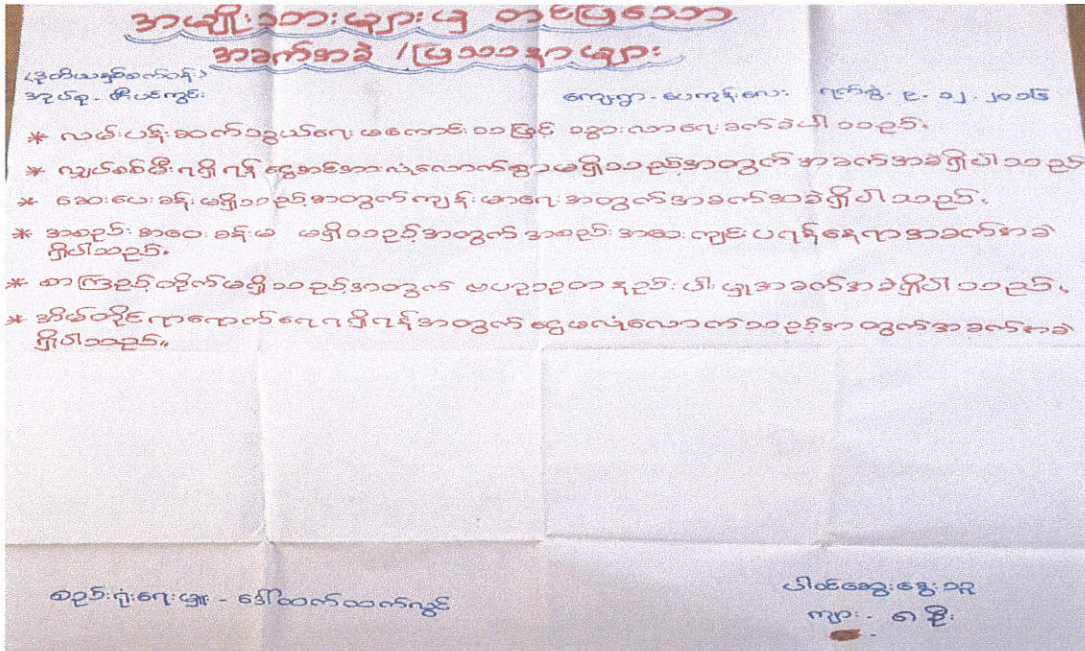 အမျိုးသားများမှ တင်ပြသော
အခက်အခဲ /ပြဿနာများ
(ဒုတိယနှစ်စက်ဝန်း)
အုပ်စု - ဇီးပင်ကွင်း
ကျေးရွာ - ပေကုန်းလေး ရက်စွဲ - ၉ . ၁၂ . ၂၀၁၆
* လမ်းပန်းဆက်သွယ်ရေး မကောင်းသဖြင့် သွားလာရေးခက်ခဲပါသည်။
* လျှပ်စစ်မီးရရှိရန် ငွေအင်အားလုံလောက်စွာမရှိသည့်အတွက် အခက်အခဲရှိပါသည်
* ဆေးပေးခန်းမရှိသည့်အတွက်ကျန်းမာရေးအတွက်အခက်အခဲရှိပါသည်။
* အစည်းအဝေးခန်းမ မရှိသည့်အတွက် အစည်းအဝေးကျင်းပရန်နေရာအခက်အခဲ
ရှိပါသည်။
* စာကြည့်တိုက်မရှိသည့်အတွက် ဗဟုသုတနည်းပါးမှုအခက်အခဲရှိပါသည်။
* အိမ်တိုင်ရာရောက်ရေရရှိရန်အတွက် ငွေမလုံလောက်သည့်အတွက်အခက်အခဲ
ရှိပါသည်။
စည်းရုံးရေးမှူး - ဒေါ်ထက်ထက်လွင်
ပါဝင်ဆွေးနွေးသူ
ကျား - ၈ ဦး